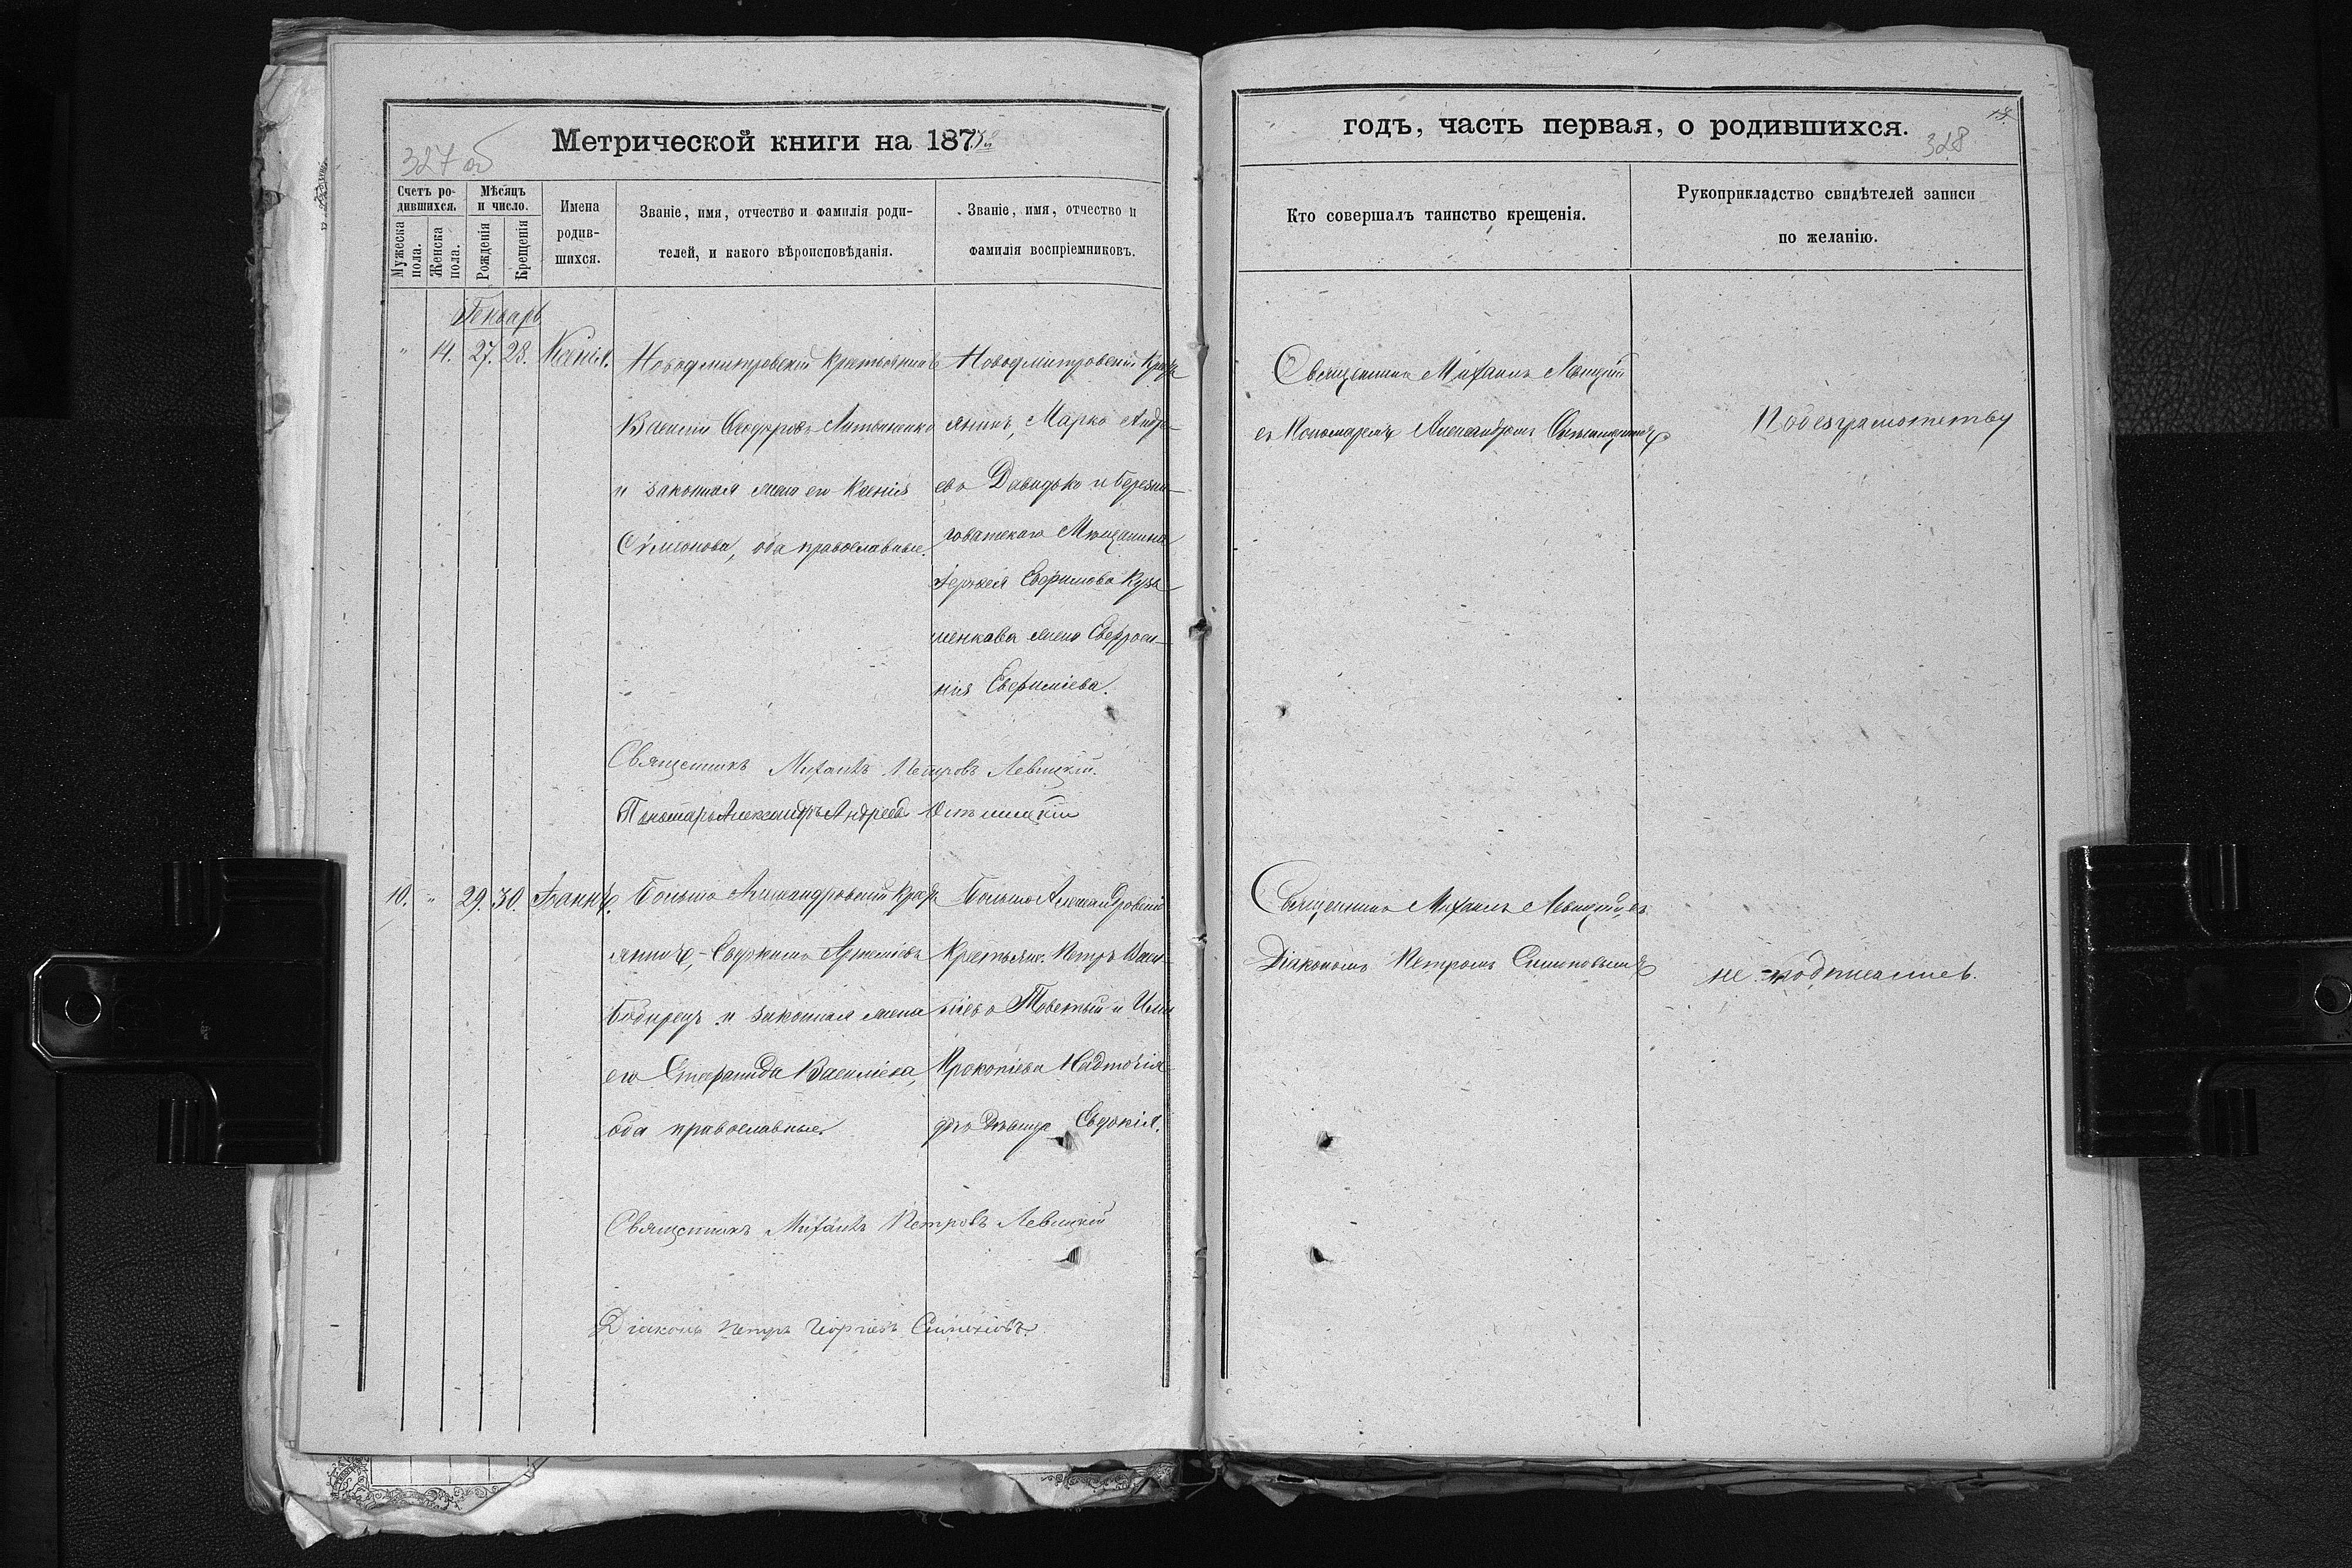 Метрической книги на 187
327 об
Счетъ родившихся.
Мѣсяцъ и число.
Имена родившихся.
Званіе, имя, отчество и фамилія родителей, и какого вѣроисповѣданія.
Званіе, имя, отчество и фамилія воспріемниковъ.
Мужеска пола.
Женска пола.
Рожденія
Крещенія
Генварь
" 14. 27. 28. Ксенія.
Новодмитровскій крестьянинъ
Василій Ѳеодоровъ
и законная жена его Ксенія
Сѵмеонова, оба православные.
Новодмитровскій Кресть-
янинъ, Марко Андре-
евъ Давидько и Березни-
говатскаго Мѣщанина
Евфимова Кузь-
менкова жена Евфроси-
нія Евфиміева.
Священникъ Михаилъ Петровъ Левицкій.
Пономарь Александръ Андреевъ
10. " 29. 30. Іоаннъ.
Больше Александровскій Кресть-
янинъ,
и законная жена
его Стефанида Василіева,
оба православные.
Больше Александровскій
Крестьян. Петръ Васи-
ліевъ Товстый и
Прокопіева Надточія
дочь Дѣвица Евдокія.
Священникъ Михаилъ Петровъ Левицкій
Діаконъ Петръ Георгіевъ Симоновъ.
годъ, часть первая, о родившихся.
328
Кто совершалъ таинство крещенія.
Рукоприкладство свидѣтелей записи по желанію.
Священникъ Михаилъ Левицкій
съ Пономаремъ Александромъ
По безграмотству
Священникъ Михаилъ Левицкій, съ
Діакономъ Петромъ Симоновымъ
не подписались.